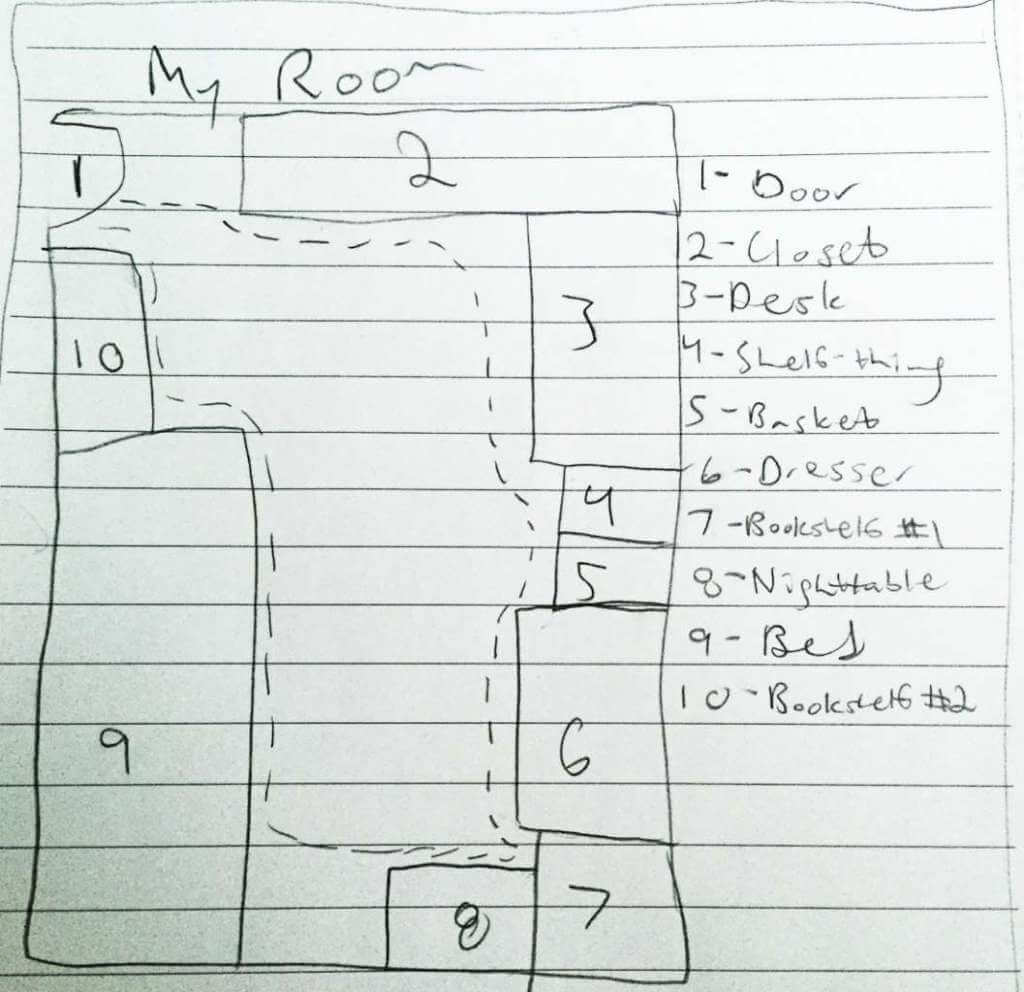 My Room
1
2
3
10
4
5
6
9
7
8
1- Door
2-Closet
3-Desk
4-Shelf-thing
5-Basket
6-Dresser
7-Bookshelf #1
8-Nighttable
9- Bed
10-Bookshelf #2